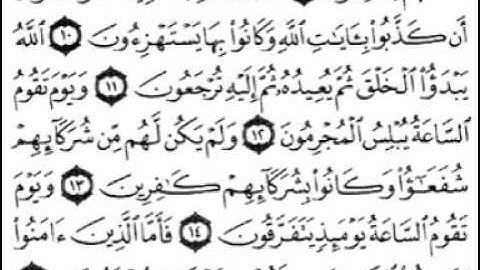 أَن كَذَّبُوا۟ بِـَٔايَـٰتِ ٱللَّهِ وَكَانُوا۟ بِهَا يَسْتَهْزِءُونَ ١٠ ٱللَّهُ
يَبْدَؤُا۟ ٱلْخَلْقَ ثُمَّ يُعِيدُهُۥ ثُمَّ إِلَيْهِ تُرْجَعُونَ ١١ وَيَوْمَ تَقُومُ
ٱلسَّاعَةُ يُبْلِسُ ٱلْمُجْرِمُونَ ١٢ وَلَمْ يَكُن لَّهُم مِّن شُرَكَآئِهِمْ
شُفَعَـٰٓؤُا۟ وَكَانُوا۟ بِشُرَكَآئِهِمْ كَـٰفِرِينَ ١٣ وَيَوْمَ
تَقُومُ ٱلسَّاعَةُ يَوْمَئِذٍ يَتَفَرَّقُونَ ١٤ فَأَمَّا ٱلَّذِينَ ءَامَنُوا۟